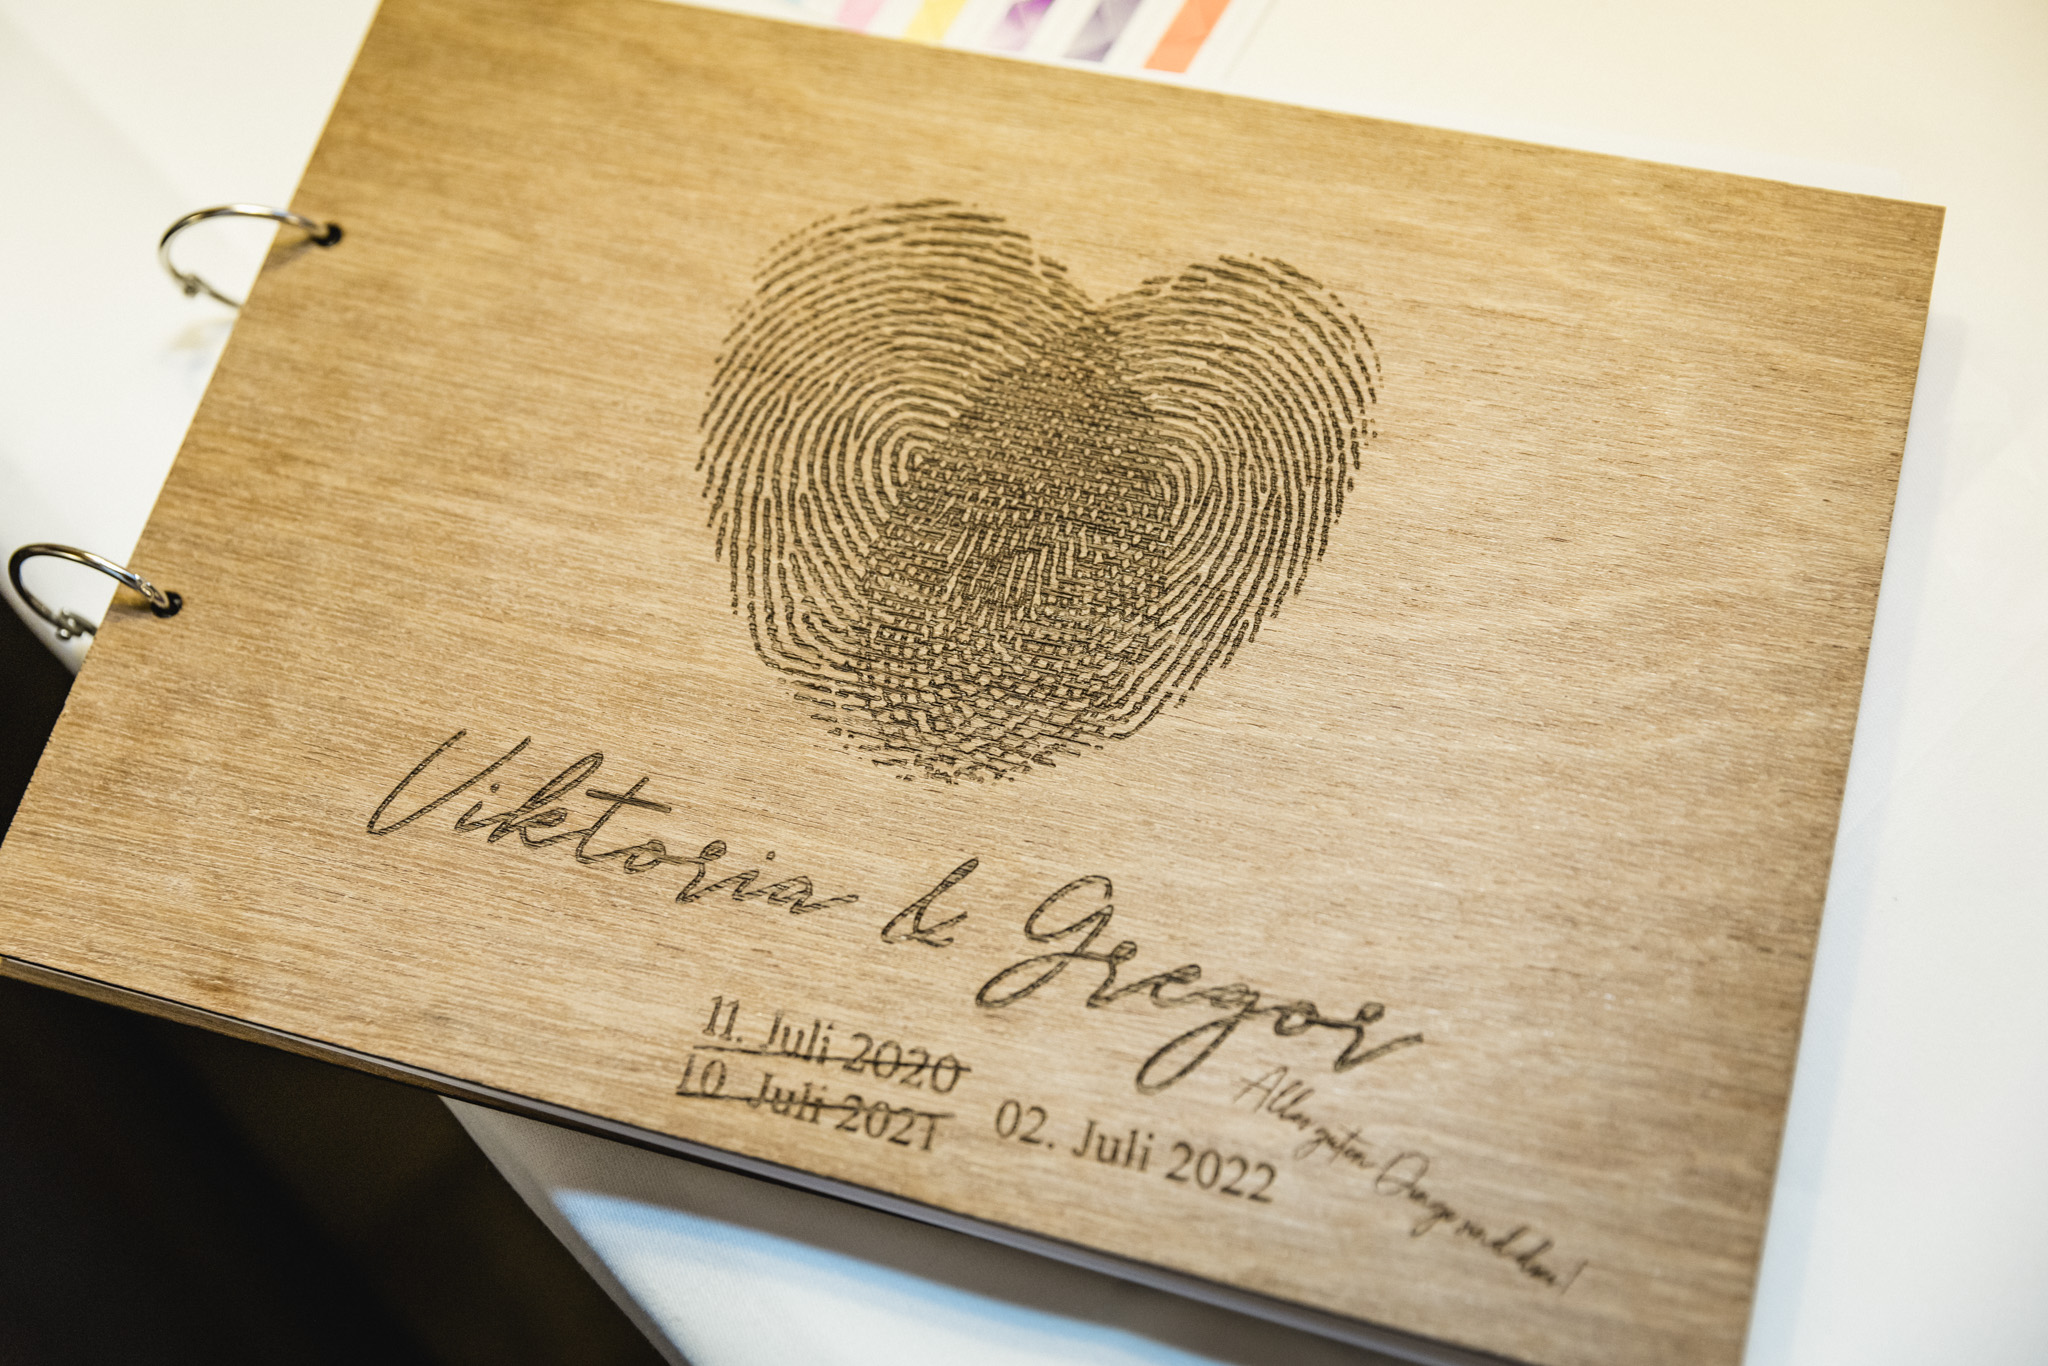 Viktoria & Gregor
11. Juli 2020
10. Juli 2021
02. Juli 2022
Aller guten Dinge sind drei!